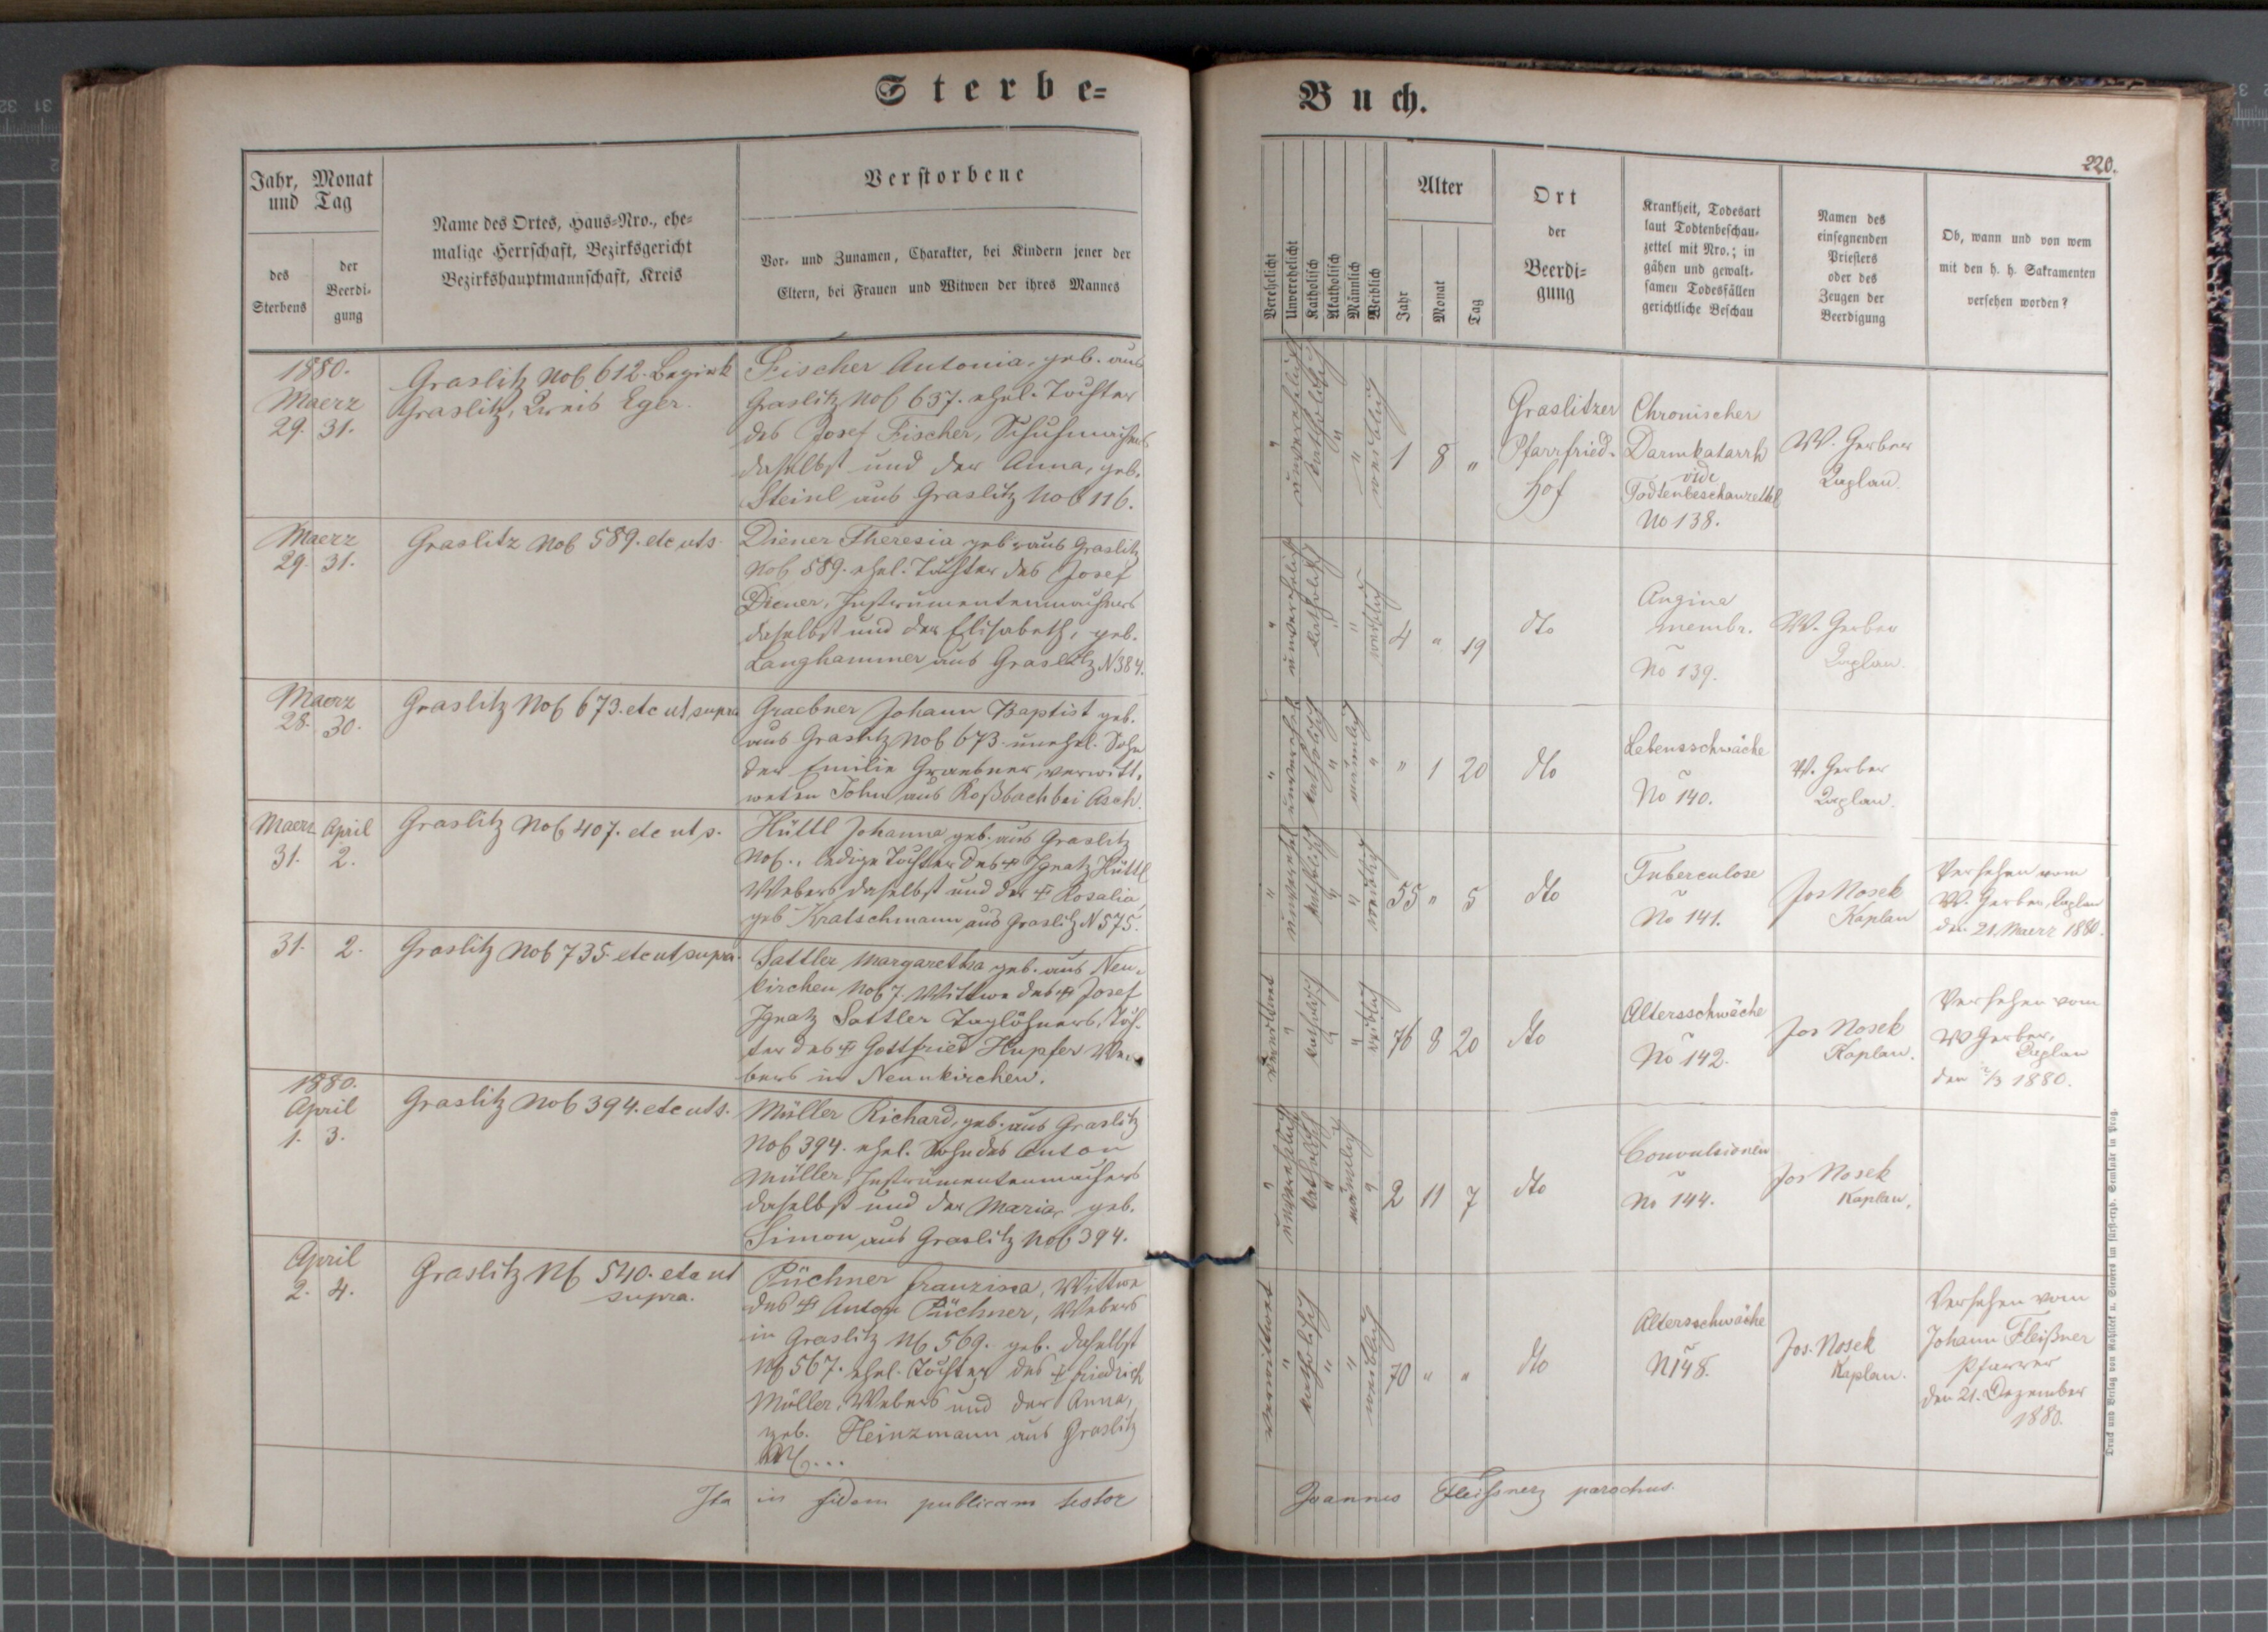 Sterbe-
Buch.
220.
Jahr, Monat
und Tag
des
Sterbens
der
Beerdi-
gung
Name des Ortes, Haus-Nro., ehe-
malige Herrschaft, Bezirksgericht
Bezirkshauptmannschaft, Kreis
Verstorbene
Vor- und Zunamen, Charakter, bei Kindern jener der
Eltern, bei Frauen und Witwen der ihres Mannes
Verehelicht
Unverehelicht
Katholisch
Akatholisch
Männlich
Weiblich
Alter
Jahr
Monat
Tag
Ort
der
Beerdi-
gung
Krankheit, Todesart
laut Todtenbeschau-
zettel mit Nro.; in
gähen und gewalt-
samen Todesfällen
gerichtliche Beschau
Namen des
einsegnenden
Priesters
oder des
Zeugen der
Beerdigung
Ob, wann und von wem
mit den h. h. Sakramenten
versehen worden?
1880.
Maerz
29. 31.
Graslitz Nob 612. Bezirk
Graslitz, Kreis Eger.
Fischer Antonia, geb. aus
Graslitz Nob 637. ehel. Tochter
des Josef Fischer, Schuhmachers
daselbst und der Anna, geb.
Steinl aus Graslitz Nob 116.
" unverehelicht katholisch " " weiblich
1 8 "
Graslitzer
Pfarrfried-
hof
Chronischer
Darmkatarrh
vide
Todtenbeschauzettel
No 138.
W. Gerber
Kaplan.
Maerz
29. 31.
Graslitz Nob 589. etc ut s.
Diener Theresia geb. aus Graslitz
Nob 589. ehel. Tochter des Josef
Diener, Instrumentenmachers
daselbst und der Elisabeth, geb.
Langhammer aus Graslitz N 384.
" unverehelicht katholisch " " weiblich
4 " 19
dto
Angina
membr.
No 139.
W. Gerber
Kaplan.
Maerz
28. 30.
Graslitz Nob 673. etc ut supra
Graebner Johann Baptist geb.
aus Graslitz Nob 673. unehel. Sohn
der Emilie Graebner, verwitt-
weten John aus Roßbach bei Asch.
" katholisch " männlich "
" 1 20
dto
Lebensschwäche
No 140.
W. Gerber
Kaplan.
Maerz April
31. 2.
Graslitz Nob 407. etc ut s.
Hüttl Johanna geb. aus Graslitz
Nob., ledige Tochter des † Ignatz Hüttl
Webers daselbst und der † Rosalia,
geb Kratschmann aus Graslitz N 575.
" katholisch " " weiblich
55 " 5
dto
Tuberculose
No 141.
Jos Nosek
Kaplan
Versehen vom
W. Gerber, Kaplan
den 21. Maerz 1880.
31. 2.
Graslitz Nob 735. etc ut supra.
Sattler Margaretha geb. aus Neu-
kirchen Nob 7. Wittwe des † Josef
Ignatz Sattler Taglöhners, Toch-
ter des † Gottfried Hupfer We-
bers in Neunkirchen.
verwittwet " katholisch " " weiblich
76 8 20
dto
Altersschwäche
No 142.
Jos Nosek
Kaplan.
Versehen vom
W Gerber,
Kaplan
den 2/3 1880.
1880.
April
1. 3.
Graslitz Nob 394. etc ut s.
Müller Richard, geb. aus Graslitz
Nob 394. ehel. Sohn des Anton
Müller, Instrumentenmachers
daselbst und der Maria, geb.
Simon aus Graslitz Nob 394.
" unverehelicht katholisch " männlich "
2 11 7
dto
Convulsionen
No 144.
Jos Nosek
Kaplan.
April
2. 4.
Graslitz Nb 540. etc ut
supra.
Püchner Franzisca, Wittwe
des † Anton Püchner, Webers
in Graslitz Nb 569. geb. daselbst
Nb 567. ehel. Tochter des † Friedrich
Müller, Webers und der Anna,
geb. Heinzmann aus Graslitz
Nb...
verwittwet " katholisch " " weiblich
70 " "
dto
Altersschwäche
N 148.
Jos. Nosek
Kaplan.
Versehen vom
Johann Fleißner
Pfarrer
den 21. Dezember
1880.
Ita in fidem publicam testor
Joannes Fleissner parochus.
Druck und Verlag von Rohliček u. Sievers im fürst-erzb. Seminär in Prag.